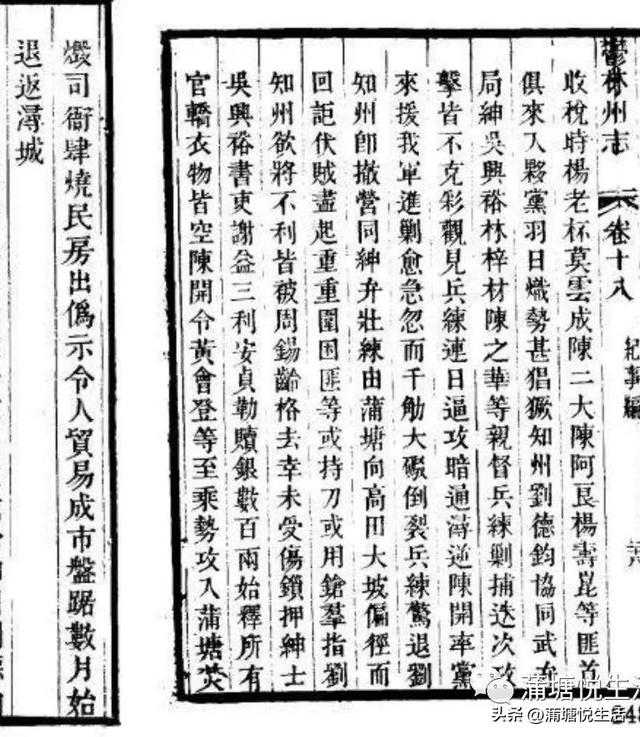 鬱林州志
卷十八
紀事編
收稅時楊老杯莫雲成陳二大陳阿艮楊壽崑等匪首
俱來入夥黨羽日熾勢甚猖獗知州劉德鈞協同武右
局紳吳興裕林梓材陳之華等親督兵練剿捕迭次攻
擊皆不克彩觀見兵練連日逼攻暗通潯逆陳開率黨
來援我軍進剿愈急忽而千觔大礮倒裂兵練驚退劉
知州卽撤營同紳弁壯練由蒲塘向高田大坡偏徑而
回詎伏賊盡起重重圍困匪等或持刀或用鎗羣指劉
知州欲將不利皆被周錫齡格去幸未受傷鎖押紳士
吳興裕書吏謝益三利安貞勒贖銀數百兩始釋所有
官轎衣物皆空陳開令黃會登等至乘勢攻入蒲塘焚
燬司衙肆燒民房出僞示令人貿易成市盤踞數月始
退返潯城
蒲塘悦生活
头条 @蒲塘悦生活